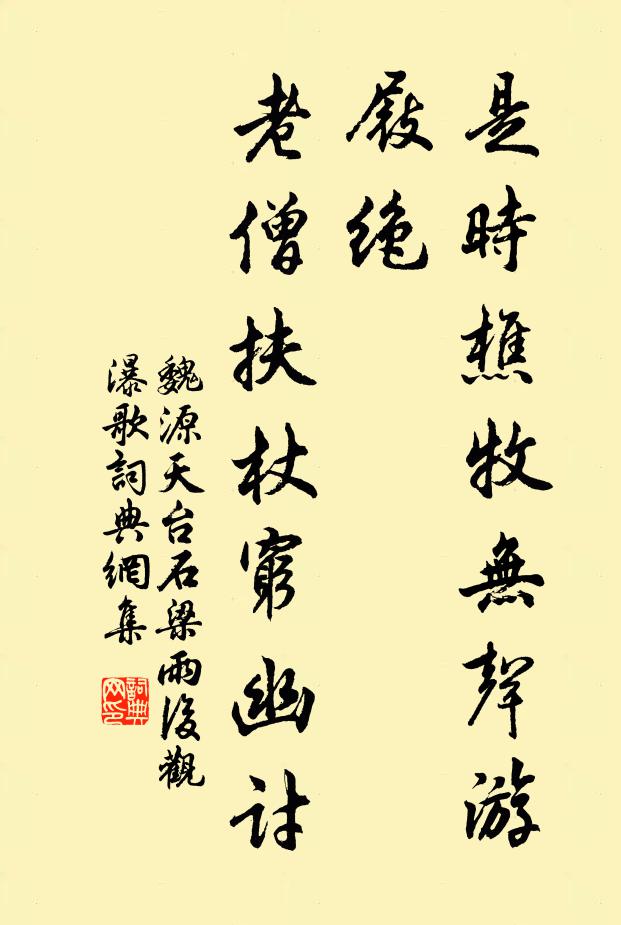 是時樵牧無聲游
屐絕
老僧扶杖窮幽討
魏源天台石梁雨後觀
瀑歌詞典網集
詞典
网印